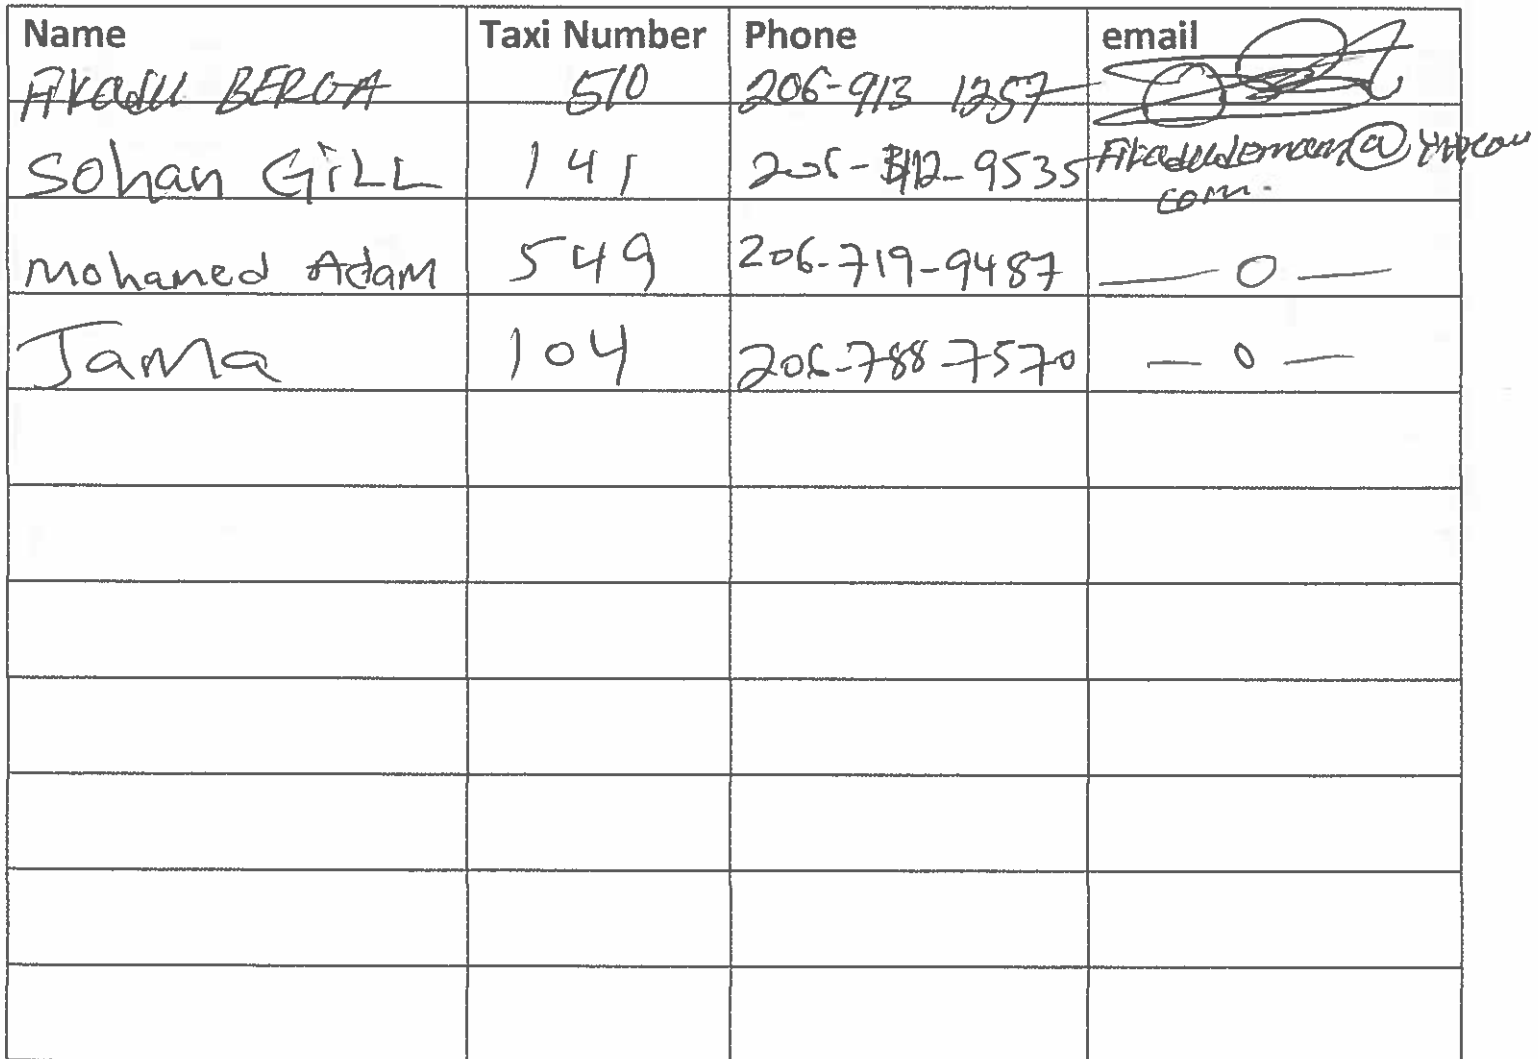 Name Taxi Number Phone email
Fikadu BERGA 510 206-913 1257
Sohan GiLL 141 206- 412-9535
Mohamed Adam 549 206-719-9487 — 0 —
Jama 104 206-788-7570 — 0 —
com.